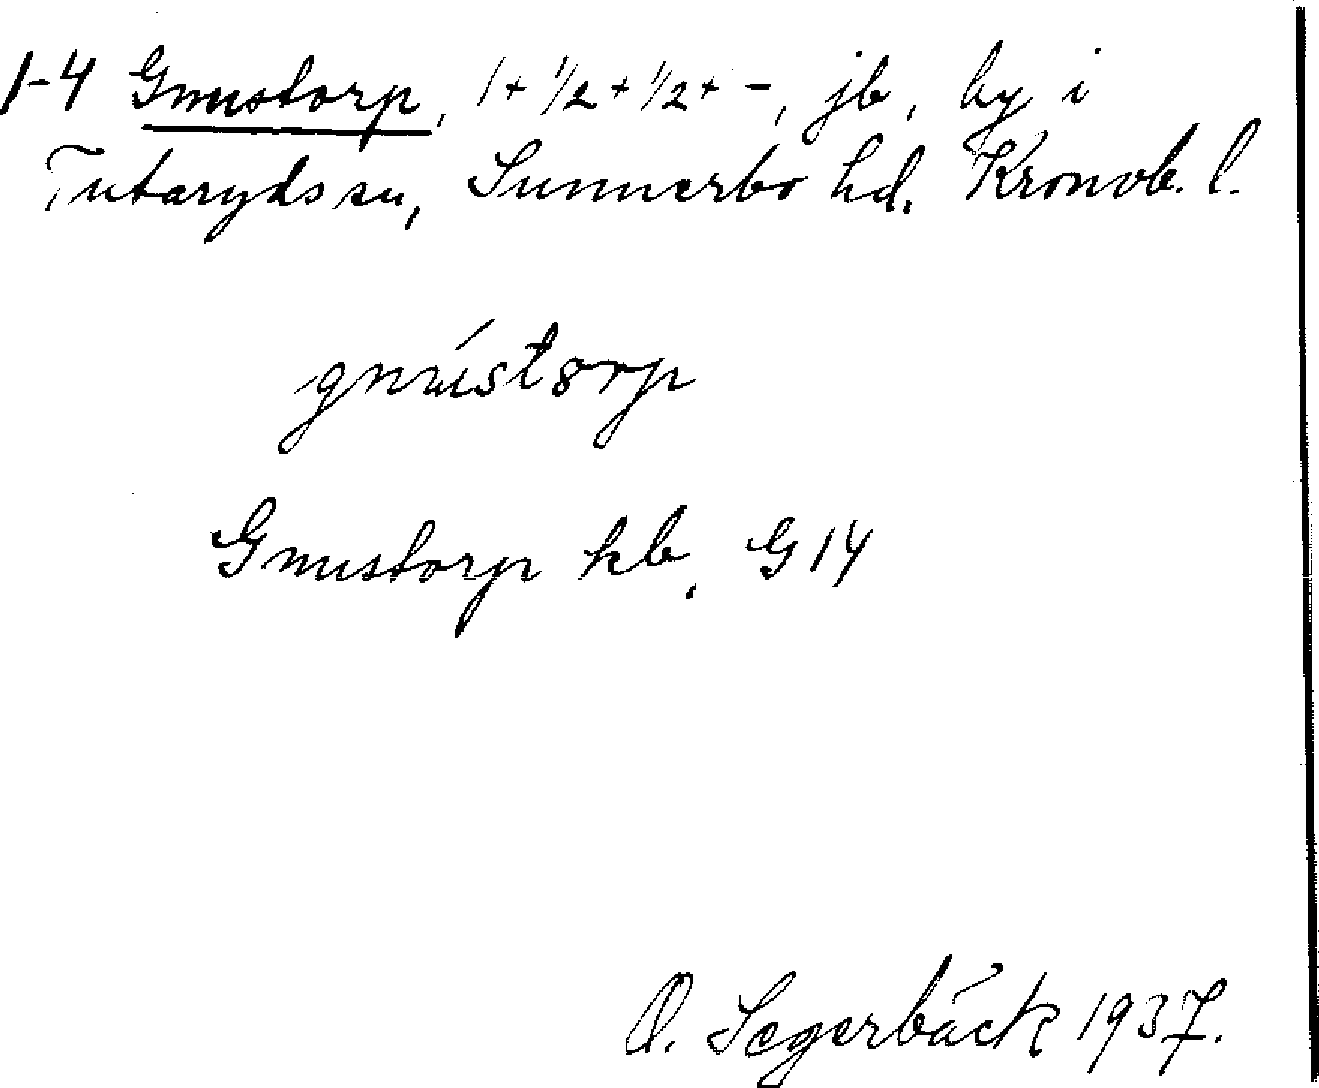 1-4 Gnustorp, 1+1/2+1/2+-, jb, by i
Tutaryds sn, Sunnerbo hd. Kronob. l.
gnústorp
Gnustorp kb, G14
O. Segerbäck 1937.